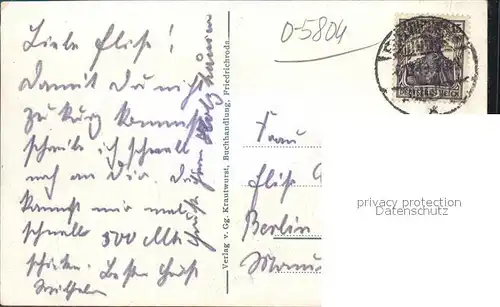 Liebe Elise!
Damit Du nicht
zu kurz kommst
schreibe ich schnell
noch an Dir. Du
kannst mir mal
schnell 500 Mk
schicken. Besten Gruß
Wilhelm
Verlag v. Gg. Krautwurst, Buchhandlung, Friedrichroda
0-5804
15
DEUTSCHES REICH
Frau
Elise
Berlin
privacy protection
Datenschutz